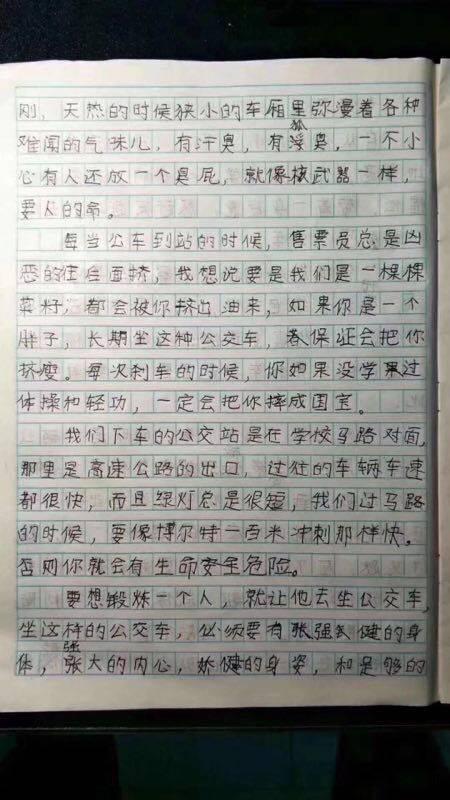 刚，天热的时候狭小的车厢里弥漫着各种
难闻的气味儿，有汗臭，有狐臭，一不小
心有人还放一个臭屁，就像核武器一样，
要人的命。
每当公车到站的时候，售票员总是凶
恶的往后面挤，我想说要是我们是一棵棵
菜籽，都会被你挤出油来，如果你是一个
胖子，长期坐这种公交车，春保证会把你
挤瘦。每次刹车的时候，你如果没学果过
体操和轻功，一定会把你摔成国宝。
我们下车的公交站是在学校马路对面，
那里是高速公路的出口，过往的车辆车速
都很快，而且绿灯总是很短，我们过马路
的时候，要像博尔特一百米冲刺那样快。
否则你就会有生命安全危险。
要想锻炼一个人，就让他去坐公交车，
坐这样的公交车，必须要有强健的身
体，强大的内心，矫健的身姿，和足够的